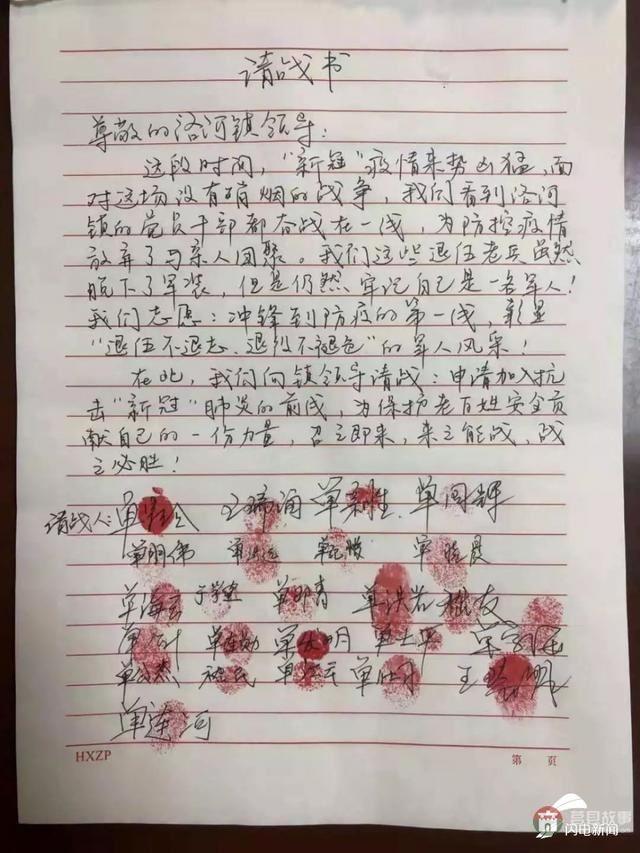 请战书
尊敬的洛河镇领导：
这段时间，“新冠”疫情来势凶猛，面
对这场没有硝烟的战争，我们看到洛河
镇的党员干部都奋战在一线，为防控疫情
放弃了与亲人团聚。我们这些退伍老兵虽然
脱下了军装，但是仍然牢记自己是一名军人！
我们志愿：冲锋到防疫的第一线，彰显
“退伍不退志、退役不褪色”的军人风采！
在此，我们向镇领导请战：申请加入抗
击“新冠”肺炎的前线，为保护老百姓安全贡
献自己的一份力量，召之即来，来之能战，战
之必胜！
请战人：单
单明伟
单海 于学建
单大明 单士平
单连河
HXZP 第 页
莒县故事
闪电新闻